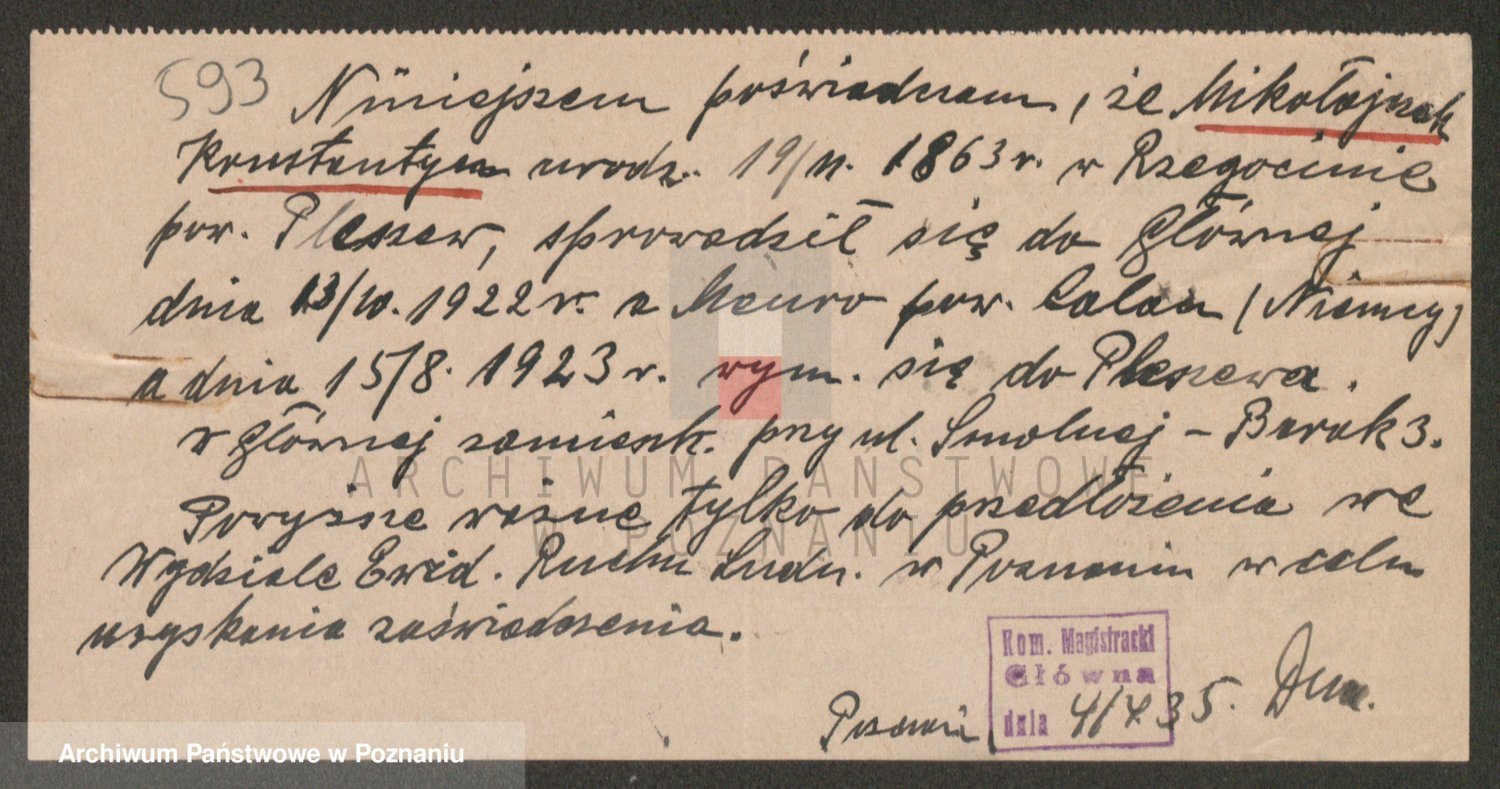 593 Niniejszem poświadczam, że Mikołajczak
Konstantyn urodz. 19/11. 1863 r. w Rzegocinie
pow. Pleszew, sprowadził się do Głównej
dnia 13/10. 1922 r. z pow. Calau (Niemcy)
a dnia 15/8. 1923 r. wym. się do Pleszewa.
w Głównej zamieszk. przy ul. Smolnej – Barak 3.
Powyższe ważne tylko do przedłożenia we
Wydziale Ewid. Ruchu Ludn. w Poznaniu w celu
uzyskania zaświadczenia.
Kom. Magistracki
Główna
Poznań, dnia 4/4 35.
ARCHIWUM PAŃSTWOWE
W POZNANIU
Archiwum Państwowe w Poznaniu